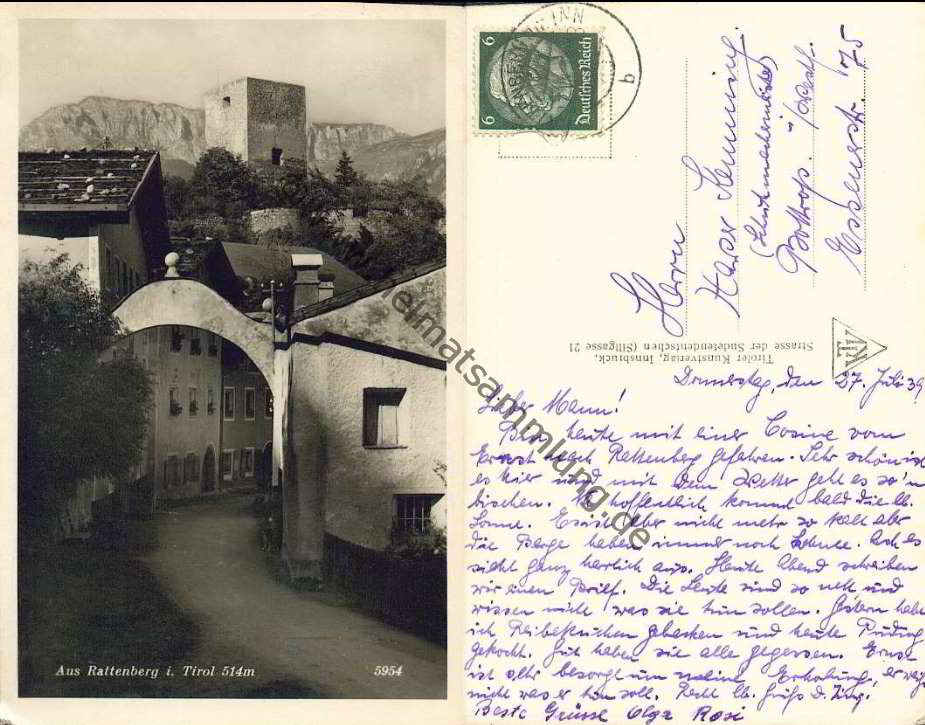 Aus Rattenberg i. Tirol 514m
5954
6 6
Deutsches Reich
INN
b
Herrn
Bottrop. i/Westf.
Essenerstr. 175
Tiroler Kunstverlag, Innsbruck,
Strasse der Sudetendeutschen (Sillgasse 21
Donnerstag, den 27. Juli 39
Lieber Mann!
Bin heute mit einer Cosine vom
Ernst nach Rattenberg gefahren. Sehr schön ist
es hier und mit dem Wetter geht es so'n
bischen. hoffentlich kommt bald die lb.
Sonne. Es ist aber nicht mehr so kalt aber
die Berge haben immer noch Schnee. Auch es
sieht ganz herrlich aus. Heute Abend schreiben
wir einen Brief. Die Leute sind so nett und
wissen nicht was sie tun sollen. Gestern habe
ich Reibekuchen gebacken und heute Pudding
gekocht. Gut haben sie alle gegessen. Ernst
ist sehr besorgt um meine Erholung, er weiß
nicht was er tun soll. Recht lb. Grüße
Beste Grüsse Olga Rosi
heimatsammlung.de